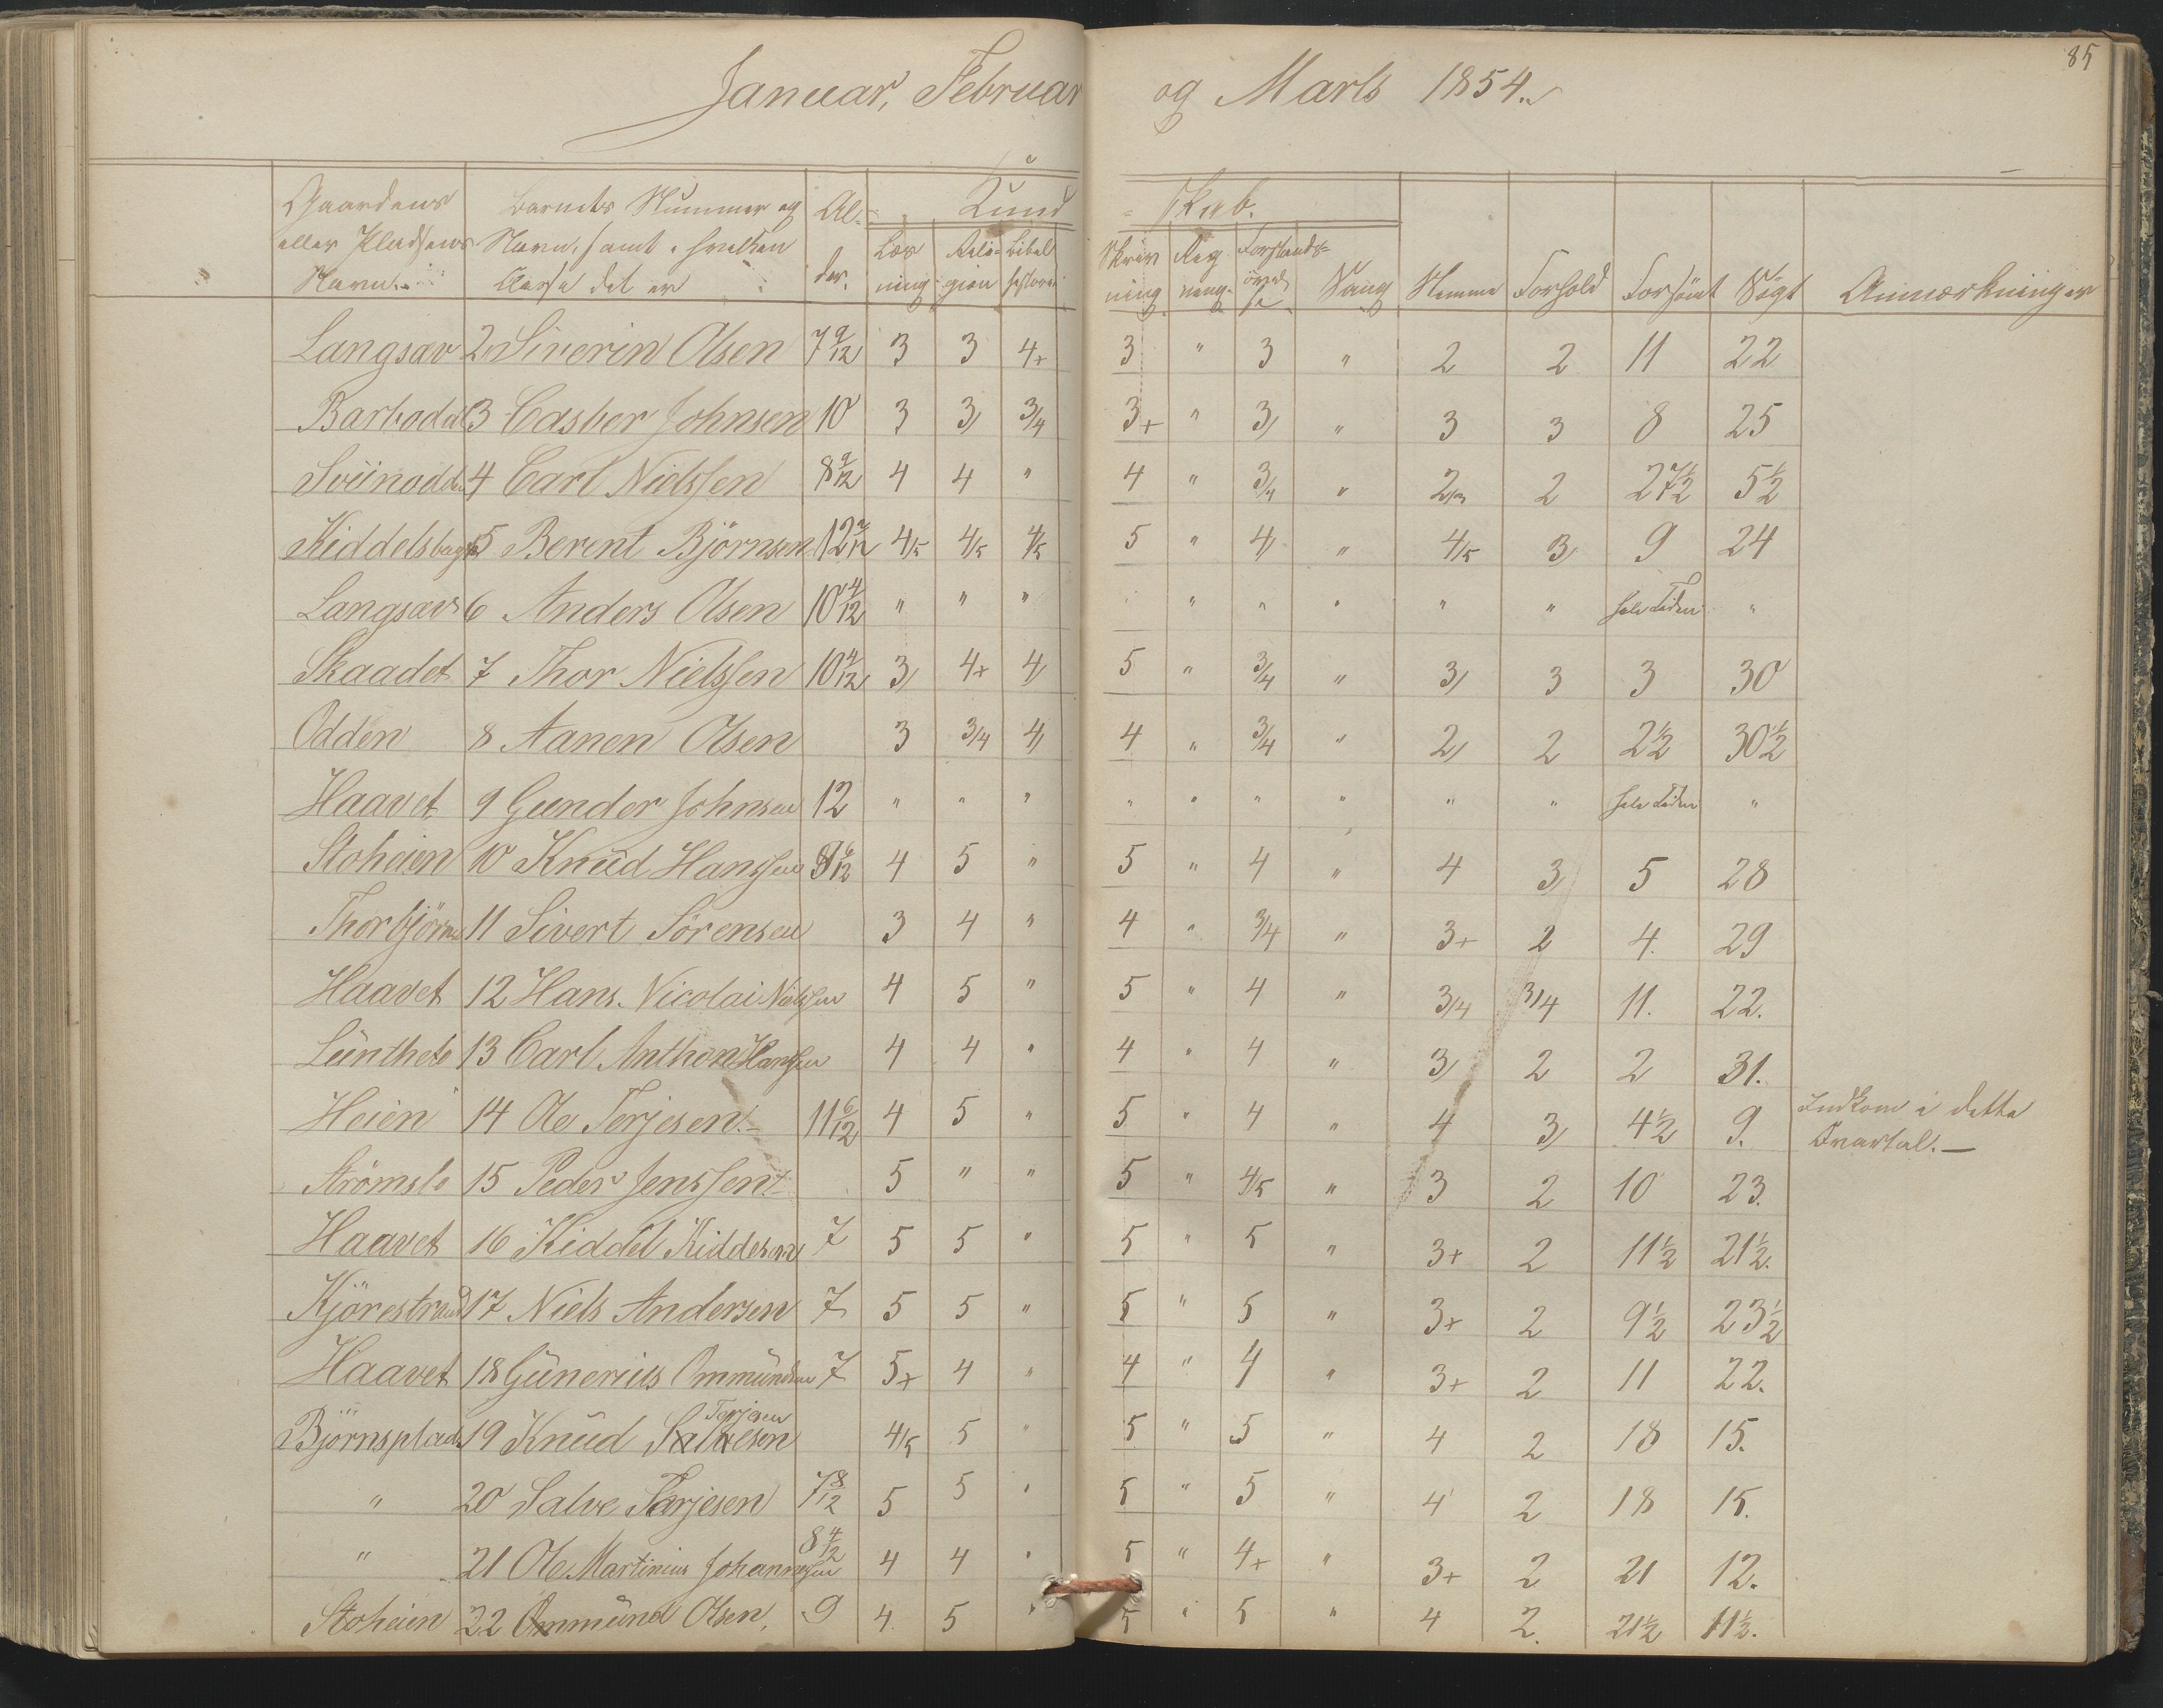 85
Januar, Februar og Marts 1854.
Gaardens eller Pladsens Navn. Barnets Nummer og Navn, samt i hvilken Classe det er Al- der. Kund- skab.
Læs ning Reli- gion Bibel historie Skriv ning Reg ning. Forstands- øvelse Sang Nemme Forhold Forsømt Søgt Anmærkninger
Langsæv 2 Siverin Olsen 7 9/12 3 3 4+ 3 " 3 " 2 2 11 22
Barbodal 3 Casber Johnsen 10 3 3/ 3/4 3+ " 3/ " 3 3 8 25
Sviinodden 4 Carl Nielssen 8 9/12 4 4 " 4 " 3/4 " 2/3 2 27½ 5½
Kiddelsbugt 5 Berent Björnsen 12 4/5 4/5 4/5 5 " 4/ " 4/5 3/ 9 24
Langsæv 6 Anders Olsen 10 4/12 " " " " " " " " " hele Tiden "
Skaadet 7 Thor Nielssen 10 4/12 3/ 4+ 4/ 5 " 3/4 " 3/ 3 3 30
Odden 8 Aanon Olsen 3 3/4 4/ 4 " 3/4 " 2/ 2 2½ 30½
Haavet 9 Gunder Johnsen 12 " " " " " " " " " hele Tiden "
Stoheien 10 Knud Hanssen 4 5 " 5 " 4 " 4 3/ 5 28
11 Sivert Sörensen 3 4 " 4 " 3/4 " 3+ 2 4. 29
Haavet 12 Hans Nicolai Nielssen 4 5 " 5 " 4 " 3/4 3/4 11. 22.
13 Carl Anthon Hanssen 4 4 " 4 " 4 " 3/ 2 2 31.
Heien 14 Ole Terjesen 11 6/12 4 5 " 5 " 4 " 4 3/ 4½ 9. Indkom i dette
Qvartal.
Strömsbo 15 Peder Jenssen 5 " " 5 " 4/5 " 3 2 10 23.
Haavet 16 Kiddel Kiddelsen 7 5 5 " 5 " 5 " 3+ 2 11½ 21½.
Kjörestrand 17 Niels Andersen 7 5 5 " 5 " 5 " 3+ 2 9½ 23½
Haavet 18 Günerius Ommundsen 7 5+ 4 " 4 " 4 " 3+ 2 11 22.
Terjesen
Björnsplads 19 Knud Salvesen 4/5 5 " 5 " 5 " 4 2 18 15.
" 20 Salve Terjesen 7 8/12 5 5 " 5 " 5 " 4 2 18 15.
" 21 Ole Martinius Johannessen 8 4/12 4 4 " 5 " 4+ " 3+ 2 21 12.
Stoheien 22 Ommund Olsen, 9 4 5 " 5 " 5 " 4 2. 21½ 11½.